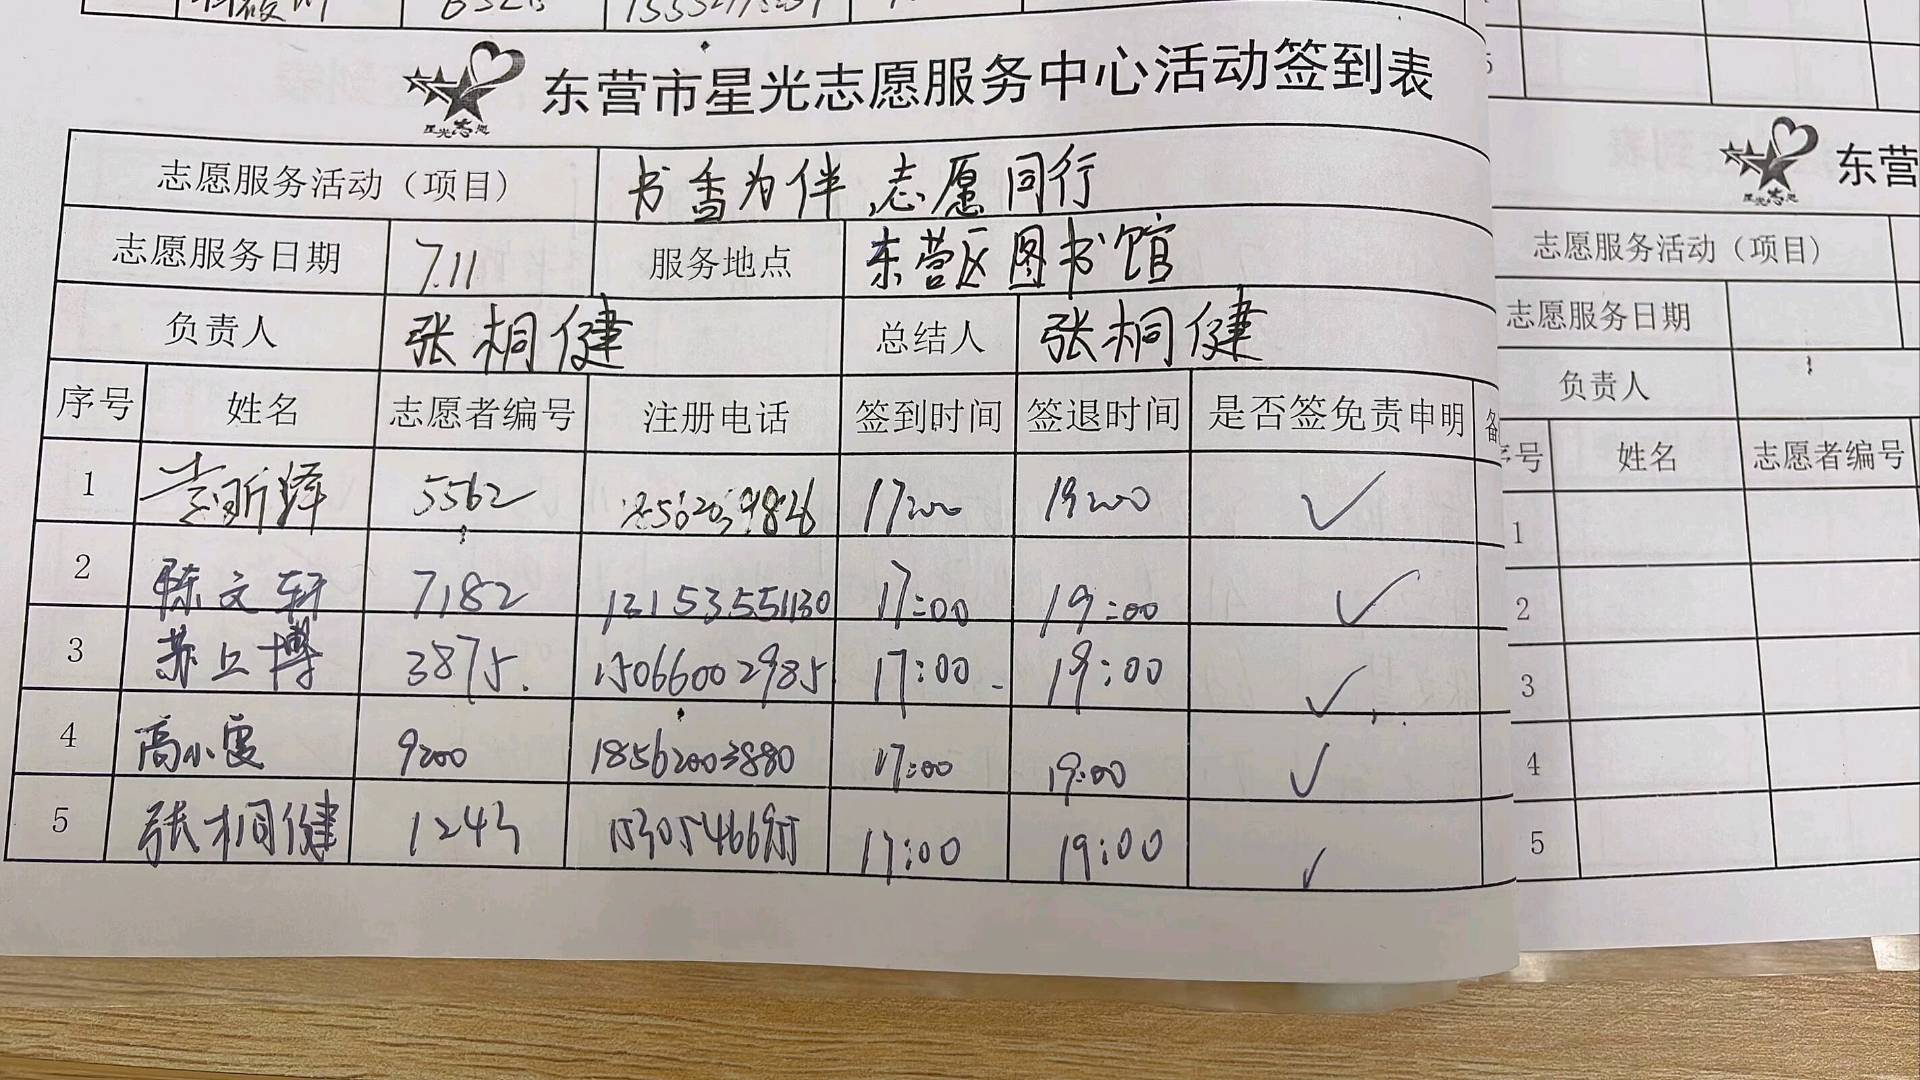 东营市星光志愿服务中心活动签到表
星光志愿
志愿服务活动（项目） 书香为伴，志愿同行
志愿服务日期 7.11 服务地点 东营区图书馆
负责人 张桐健 总结人 张桐健
序号 姓名 志愿者编号 注册电话 签到时间 签退时间 是否签免责申明 备
1 5562 17:00 19:00 ✓
2 陈文轩 7182 13153551130 17:00 19:00 ✓
3 苏上博 3875. 15066002985 17:00 19:00 ✓
4 高小雯 9200 18562003880 17:00 19:00 ✓
5 张桐健 1243 15305466955 17:00 19:00 ✓
5
东营
星光志愿
志愿服务活动（项目）
志愿服务日期
负责人
序号 姓名 志愿者编号
1
2
3
4
5